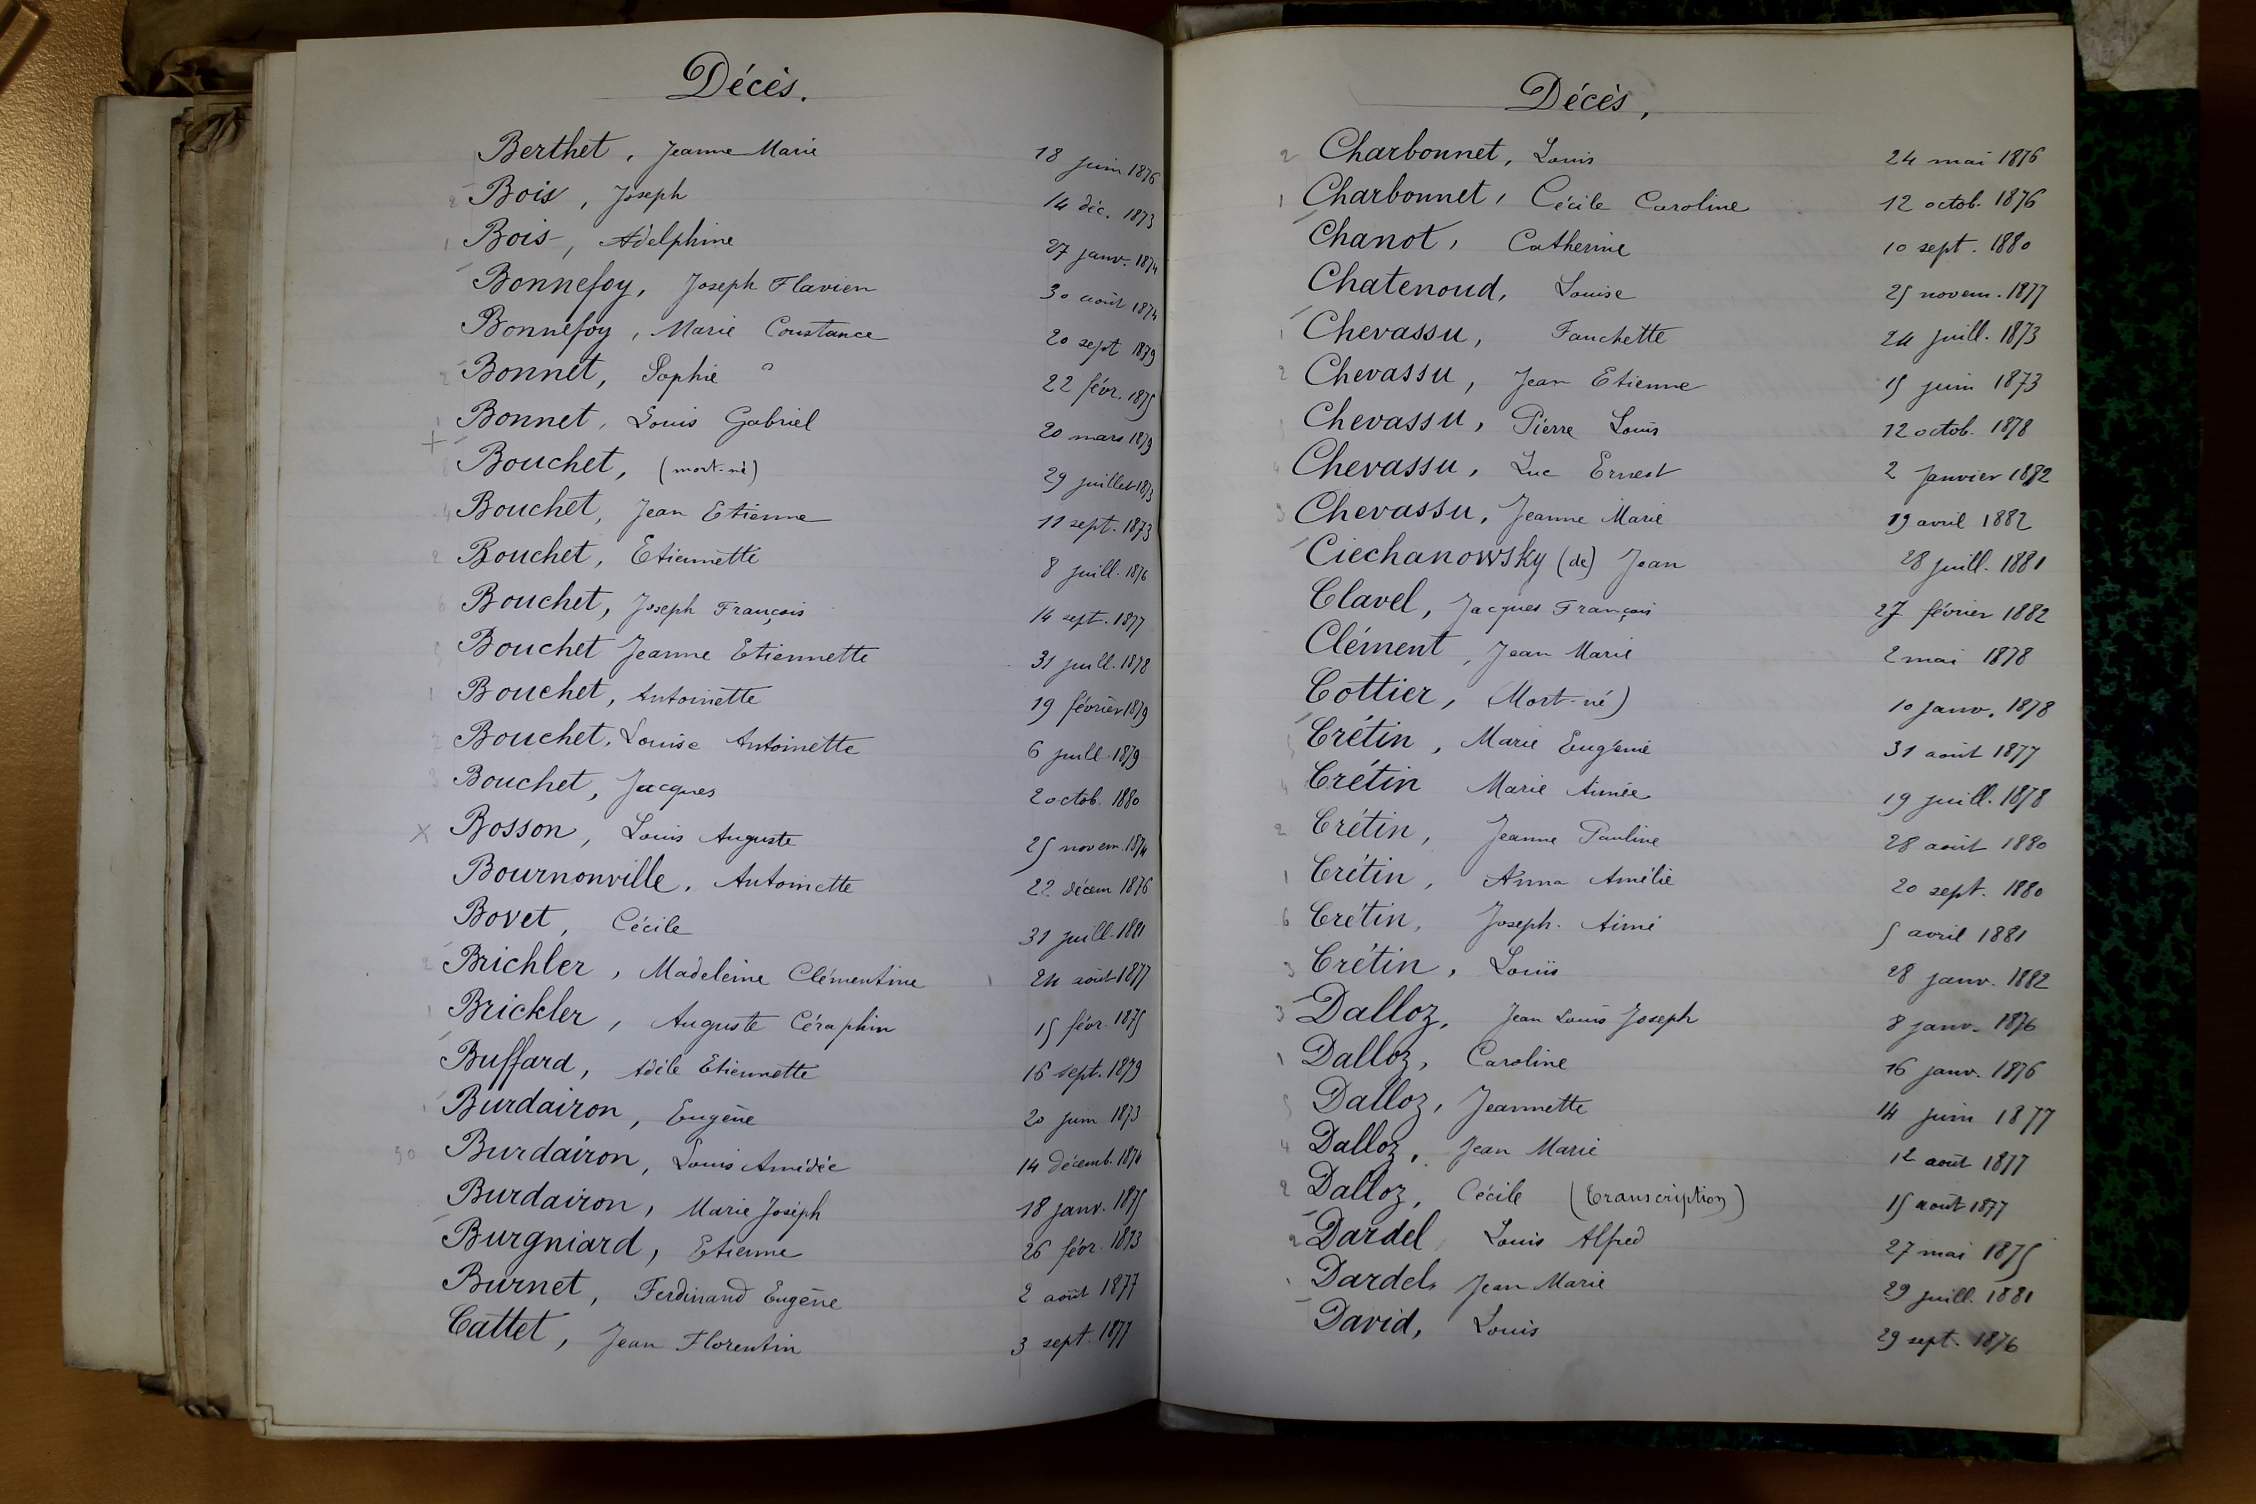 Décès.
Berthet, Jeanne Marie 18 juin 1876
2 Bois, Joseph 14 déc. 1873
1 Bois, Adelphine 27 janv. 1874
Bonnefoy, Joseph Flavien 30 août 1874
Bonnefoy, Marie Constance 20 sept 1879
2 Bonnet, Sophie 22 févr. 1875
1 Bonnet, Louis Gabriel 20 mars 1879
+ Bouchet, (mort-né) 29 juillet 1873
4 Bouchet, Jean Etienne 11 sept. 1873
2 Bouchet, Etiennette 8 juill. 1876
6 Bouchet, Joseph François 14 sept. 1877
5 Bouchet Jeanne Etiennette 31 juill. 1878
1 Bouchet, Antoinette 19 février 1879
7 Bouchet, Louise Antoinette 6 juill. 1879
3 Bouchet, Jacques 2 octob. 1880
X Bosson, Louis Auguste 25 novem. 1874
Bournonville, Antoinette 22 décem 1876
Bovet, Cécile 31 juill. 1881
2 Brichler, Madeleine Clémentine 24 août 1877
1 Brickler, Auguste Céraphin 15 févr. 1875
Buffard, Adèle Etiennette 16 sept. 1879
1 Burdairon, Eugène 20 juin 1873
Burdairon, Louis Amédée 14 décemb. 1874
Burdairon, Marie Joseph 18 janv. 1875
Burgniard, Etienne 26 févr. 1873
Burnet, Ferdinand Eugène 2 août 1877
Cattet, Jean Florentin 3 sept. 1877
Décès,
2 Charbonnet, Louis 24 mai 1876
1 Charbonnet, Cécile Caroline 12 octob. 1876
Chanot, Catherine 10 sept. 1880
Chatenoud, Louise 25 novem. 1877
1 Chevassu, Fanchette 24 juill. 1873
2 Chevassu, Jean Etienne 15 juin 1873
Chevassu, Pierre Louis 12 octob. 1878
4 Chevassu, Luc Ernest 2 Janvier 1882
3 Chevassu, Jeanne Marie 19 avril 1882
Ciechanowsky (de) Jean 28 juill. 1881
Clavel, Jacques François 27 février 1882
Clément, Jean Marie 2 mai 1878
Cottier, (Mort-né) 10 janv. 1878
5 Crétin, Marie Eugénie 31 août 1877
4 Crétin Marie Aimée 19 juill. 1878
2 Crétin, Jeanne Pauline 28 août 1880
1 Crétin, Anna Amélie 20 sept. 1880
6 Crétin, Joseph. Aimé 5 avril 1881
3 Crétin, Louis 28 janv. 1882
3 Dalloz, Jean Louis Joseph 8 janv. 1876
1 Dalloz, Caroline 16 janv. 1876
5 Dalloz, Jeannette 14 juin 1877
4 Dalloz, Jean Marie 12 août 1877
2 Dalloz, Cécile (transcription) 15 août 1877
2 Dardel Louis Alfred 27 mai 1875
1 Dardel, Jean Marie 29 juill. 1881
David, Louis 29 sept. 1876